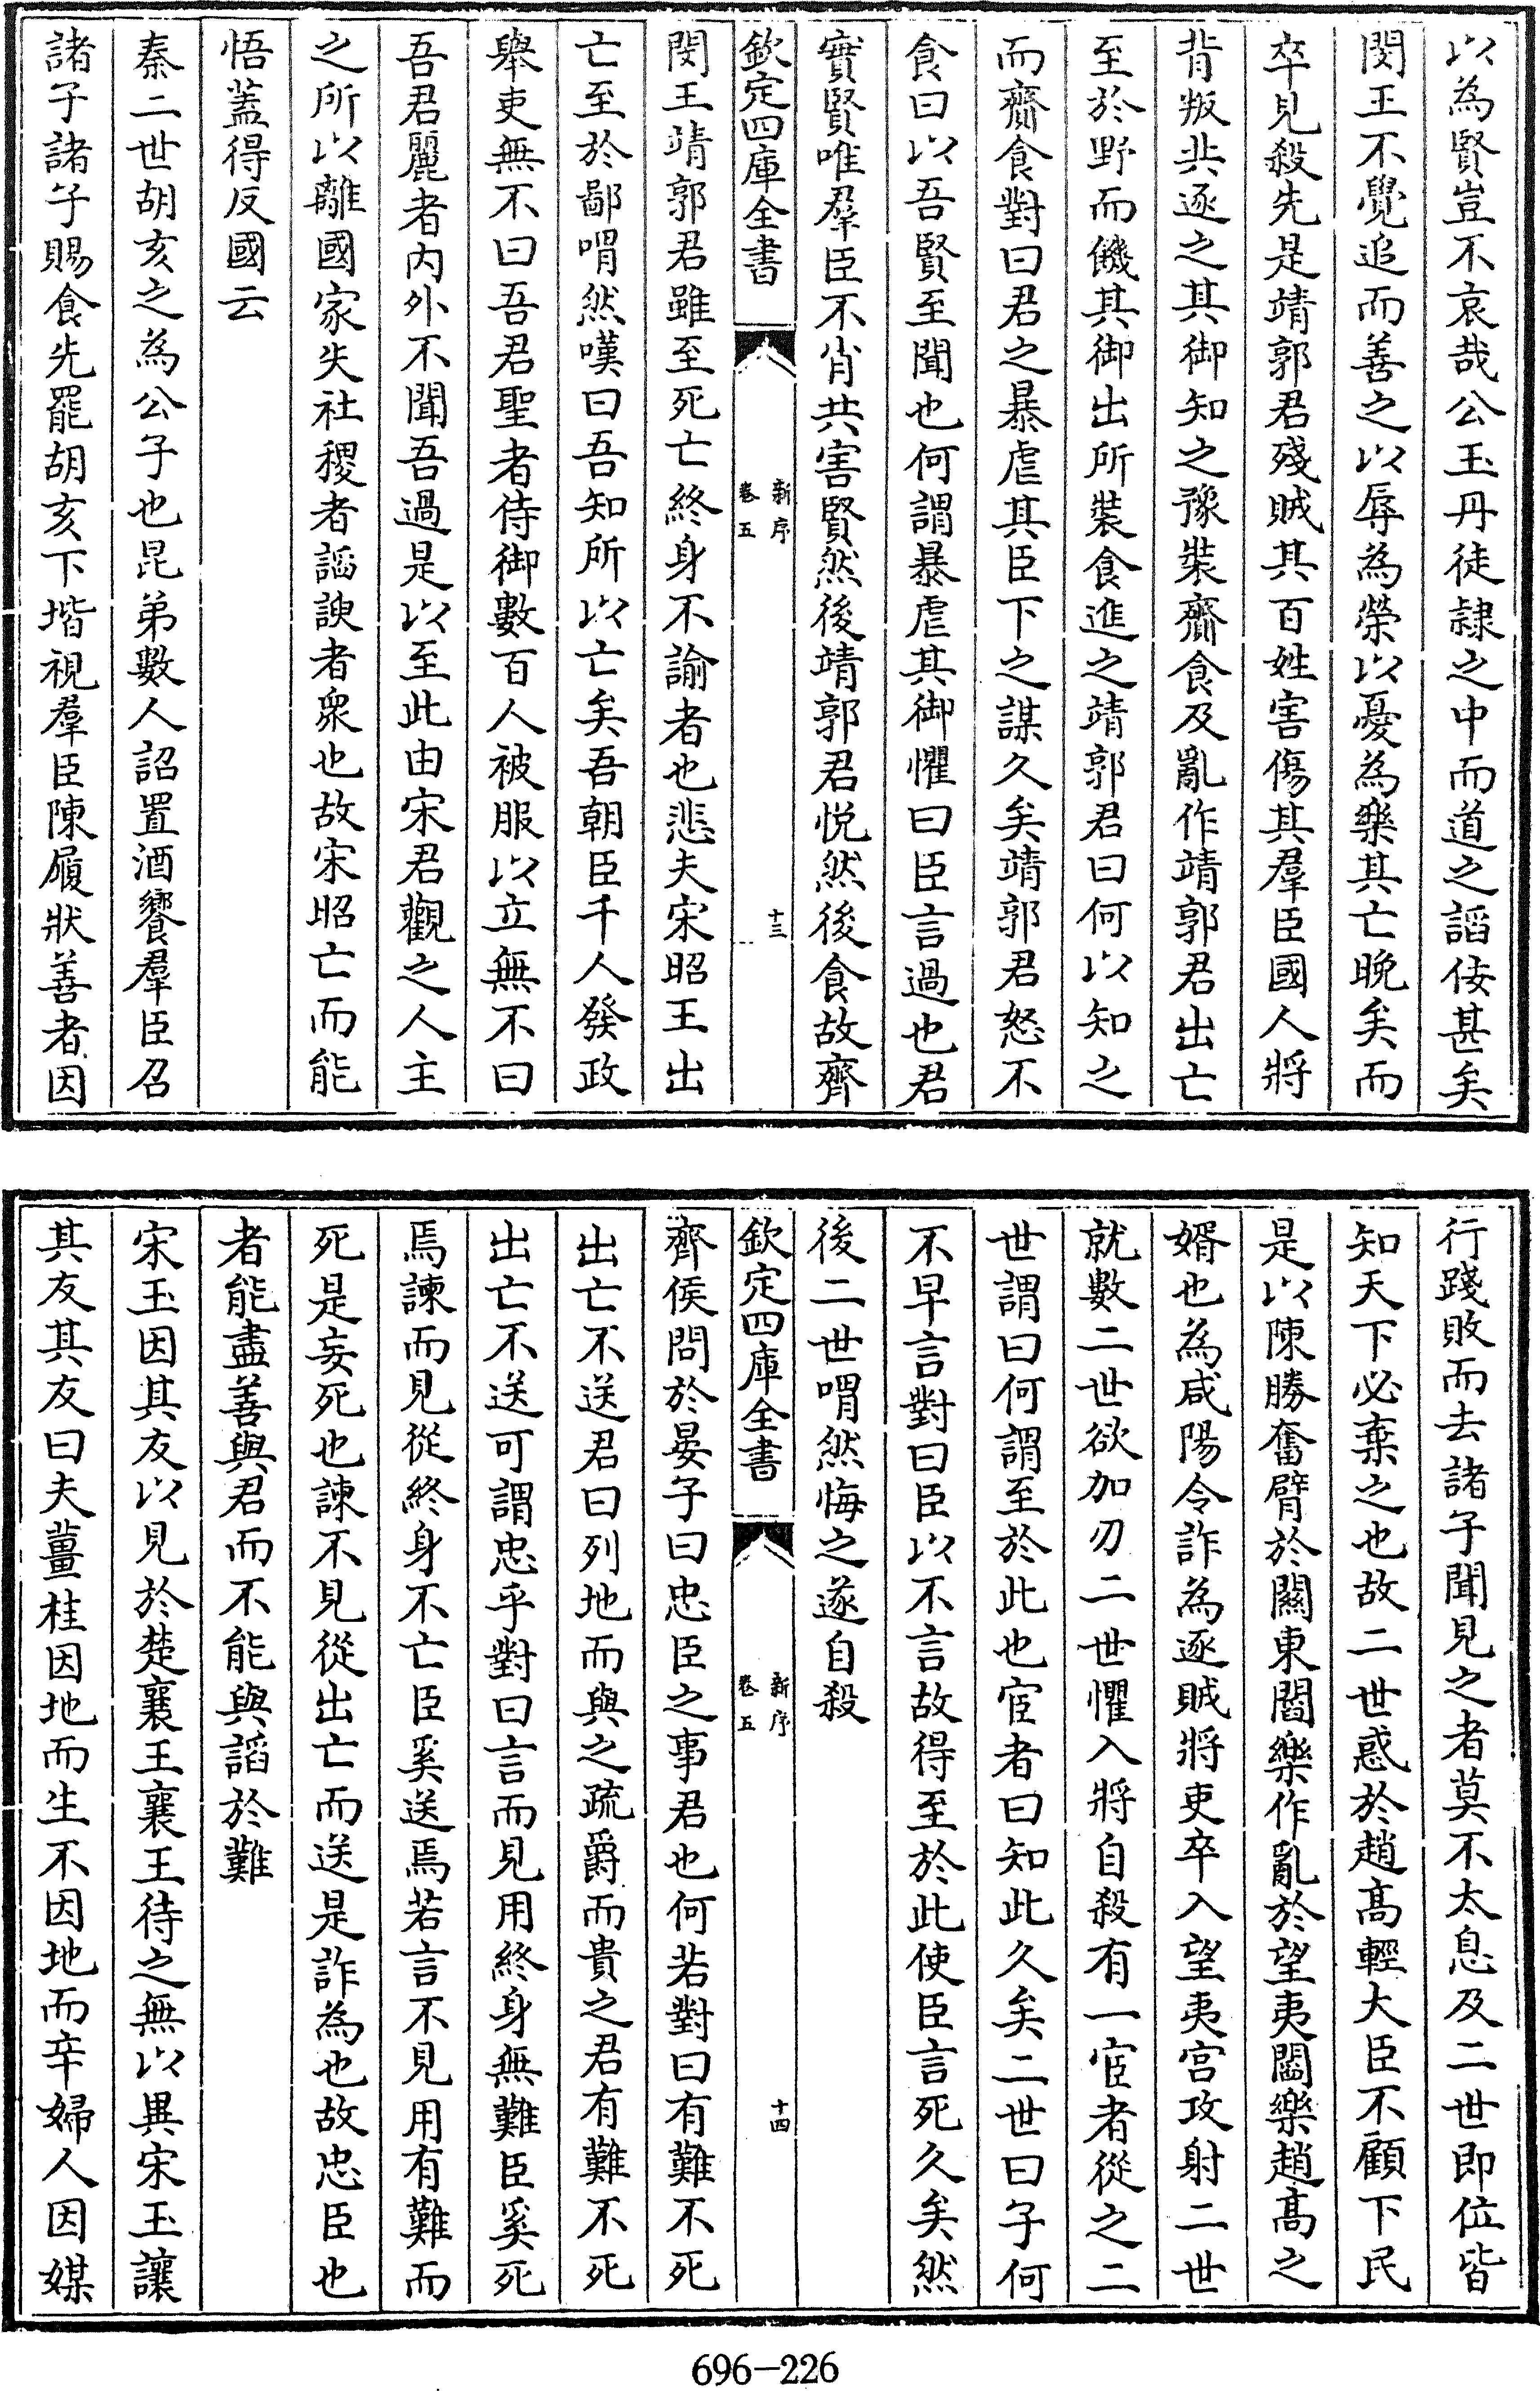 以為賢豈不哀哉公玉丹徒隷之中而道之謟佞甚矣
閔王不覺追而善之以辱為榮以憂為樂其亡晚矣而
卒見殺先是靖郭君殘賊其百姓害傷其羣臣國人將
背叛共逐之其御知之豫裝齎食及亂作靖郭君出亡
至於野而饑其御出所裝食進之靖郭君曰何以知之
而齎食對曰君之暴虐其臣下之謀久矣靖郭君怒不
食曰以吾賢至聞也何謂暴虐其御懼曰臣言過也君
實賢唯羣臣不肖共害賢然後靖郭君悦然後食故齊
欽定四庫全書
新序
卷五
十三
閔王靖郭君雖至死亡終身不諭者也悲夫宋昭王出
亡至於鄙喟然嘆曰吾知所以亡矣吾朝臣千人發政
舉吏無不曰吾君聖者侍御數百人被服以立無不曰
吾君麗者内外不聞吾過是以至此由宋君觀之人主
之所以離國家失社稷者謟諛者衆也故宋昭亡而能
悟蓋得反國云
秦二世胡亥之為公子也昆弟數人詔置酒饗羣臣召
諸子諸子賜食先罷胡亥下堦視羣臣陳履狀善者因
行踐敗而去諸子聞見之者莫不太息及二世即位皆
知天下必棄之也故二世惑於趙髙輕大臣不顧下民
是以陳勝奮臂於關東閻樂作亂於望夷閻樂趙髙之
婿也為咸陽令詐為逐賊將吏卒入望夷宫攻射二世
就數二世欲加刃二世懼入將自殺有一宦者從之二
世謂曰何謂至於此也宦者曰知此久矣二世曰子何
不早言對曰臣以不言故得至於此使臣言死久矣然
後二世喟然悔之遂自殺
欽定四庫全書
新序
卷五
十四
齊侯問於晏子曰忠臣之事君也何若對曰有難不死
出亡不送君曰列地而與之疏爵而貴之君有難不死
出亡不送可謂忠乎對曰言而見用終身無難臣奚死
焉諫而見從終身不亡臣奚送焉若言不見用有難而
死是妄死也諫不見從出亡而送是詐為也故忠臣也
者能盡善與君而不能與謟於難
宋玉因其友以見於楚襄王襄王待之無以異宋玉讓
其友其友曰夫薑桂因地而生不因地而辛婦人因媒
696-226